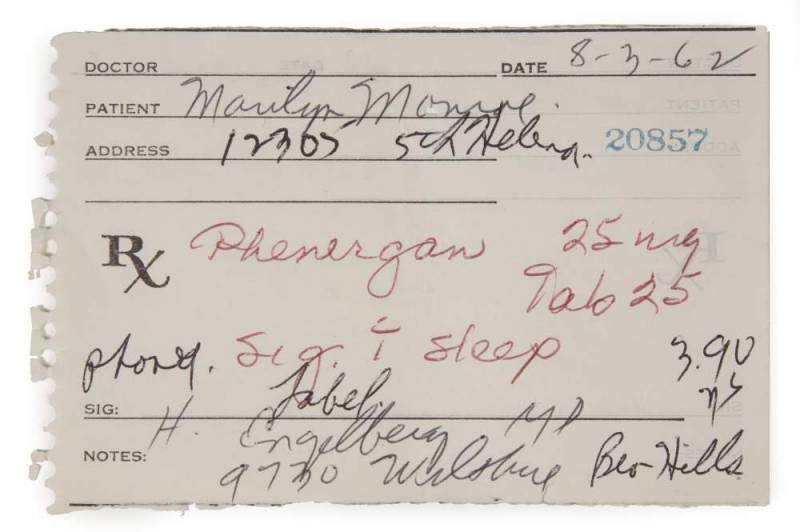 DOCTOR DATE 8-3-62
PATIENT Marilyn Monroe.
ADDRESS 12305 5th Helena. 20857
Rx Phenergan 25 mg
Tab 25
phoned. Sig. i sleep 3.90
Label. ns
SIG:
H. Engelberg MD
NOTES: 9730 Wilshire Bev Hills